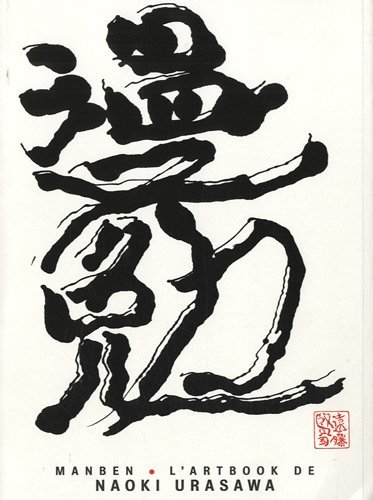 漫勉
MANBEN • L'ARTBOOK DE
NAOKI URASAWA